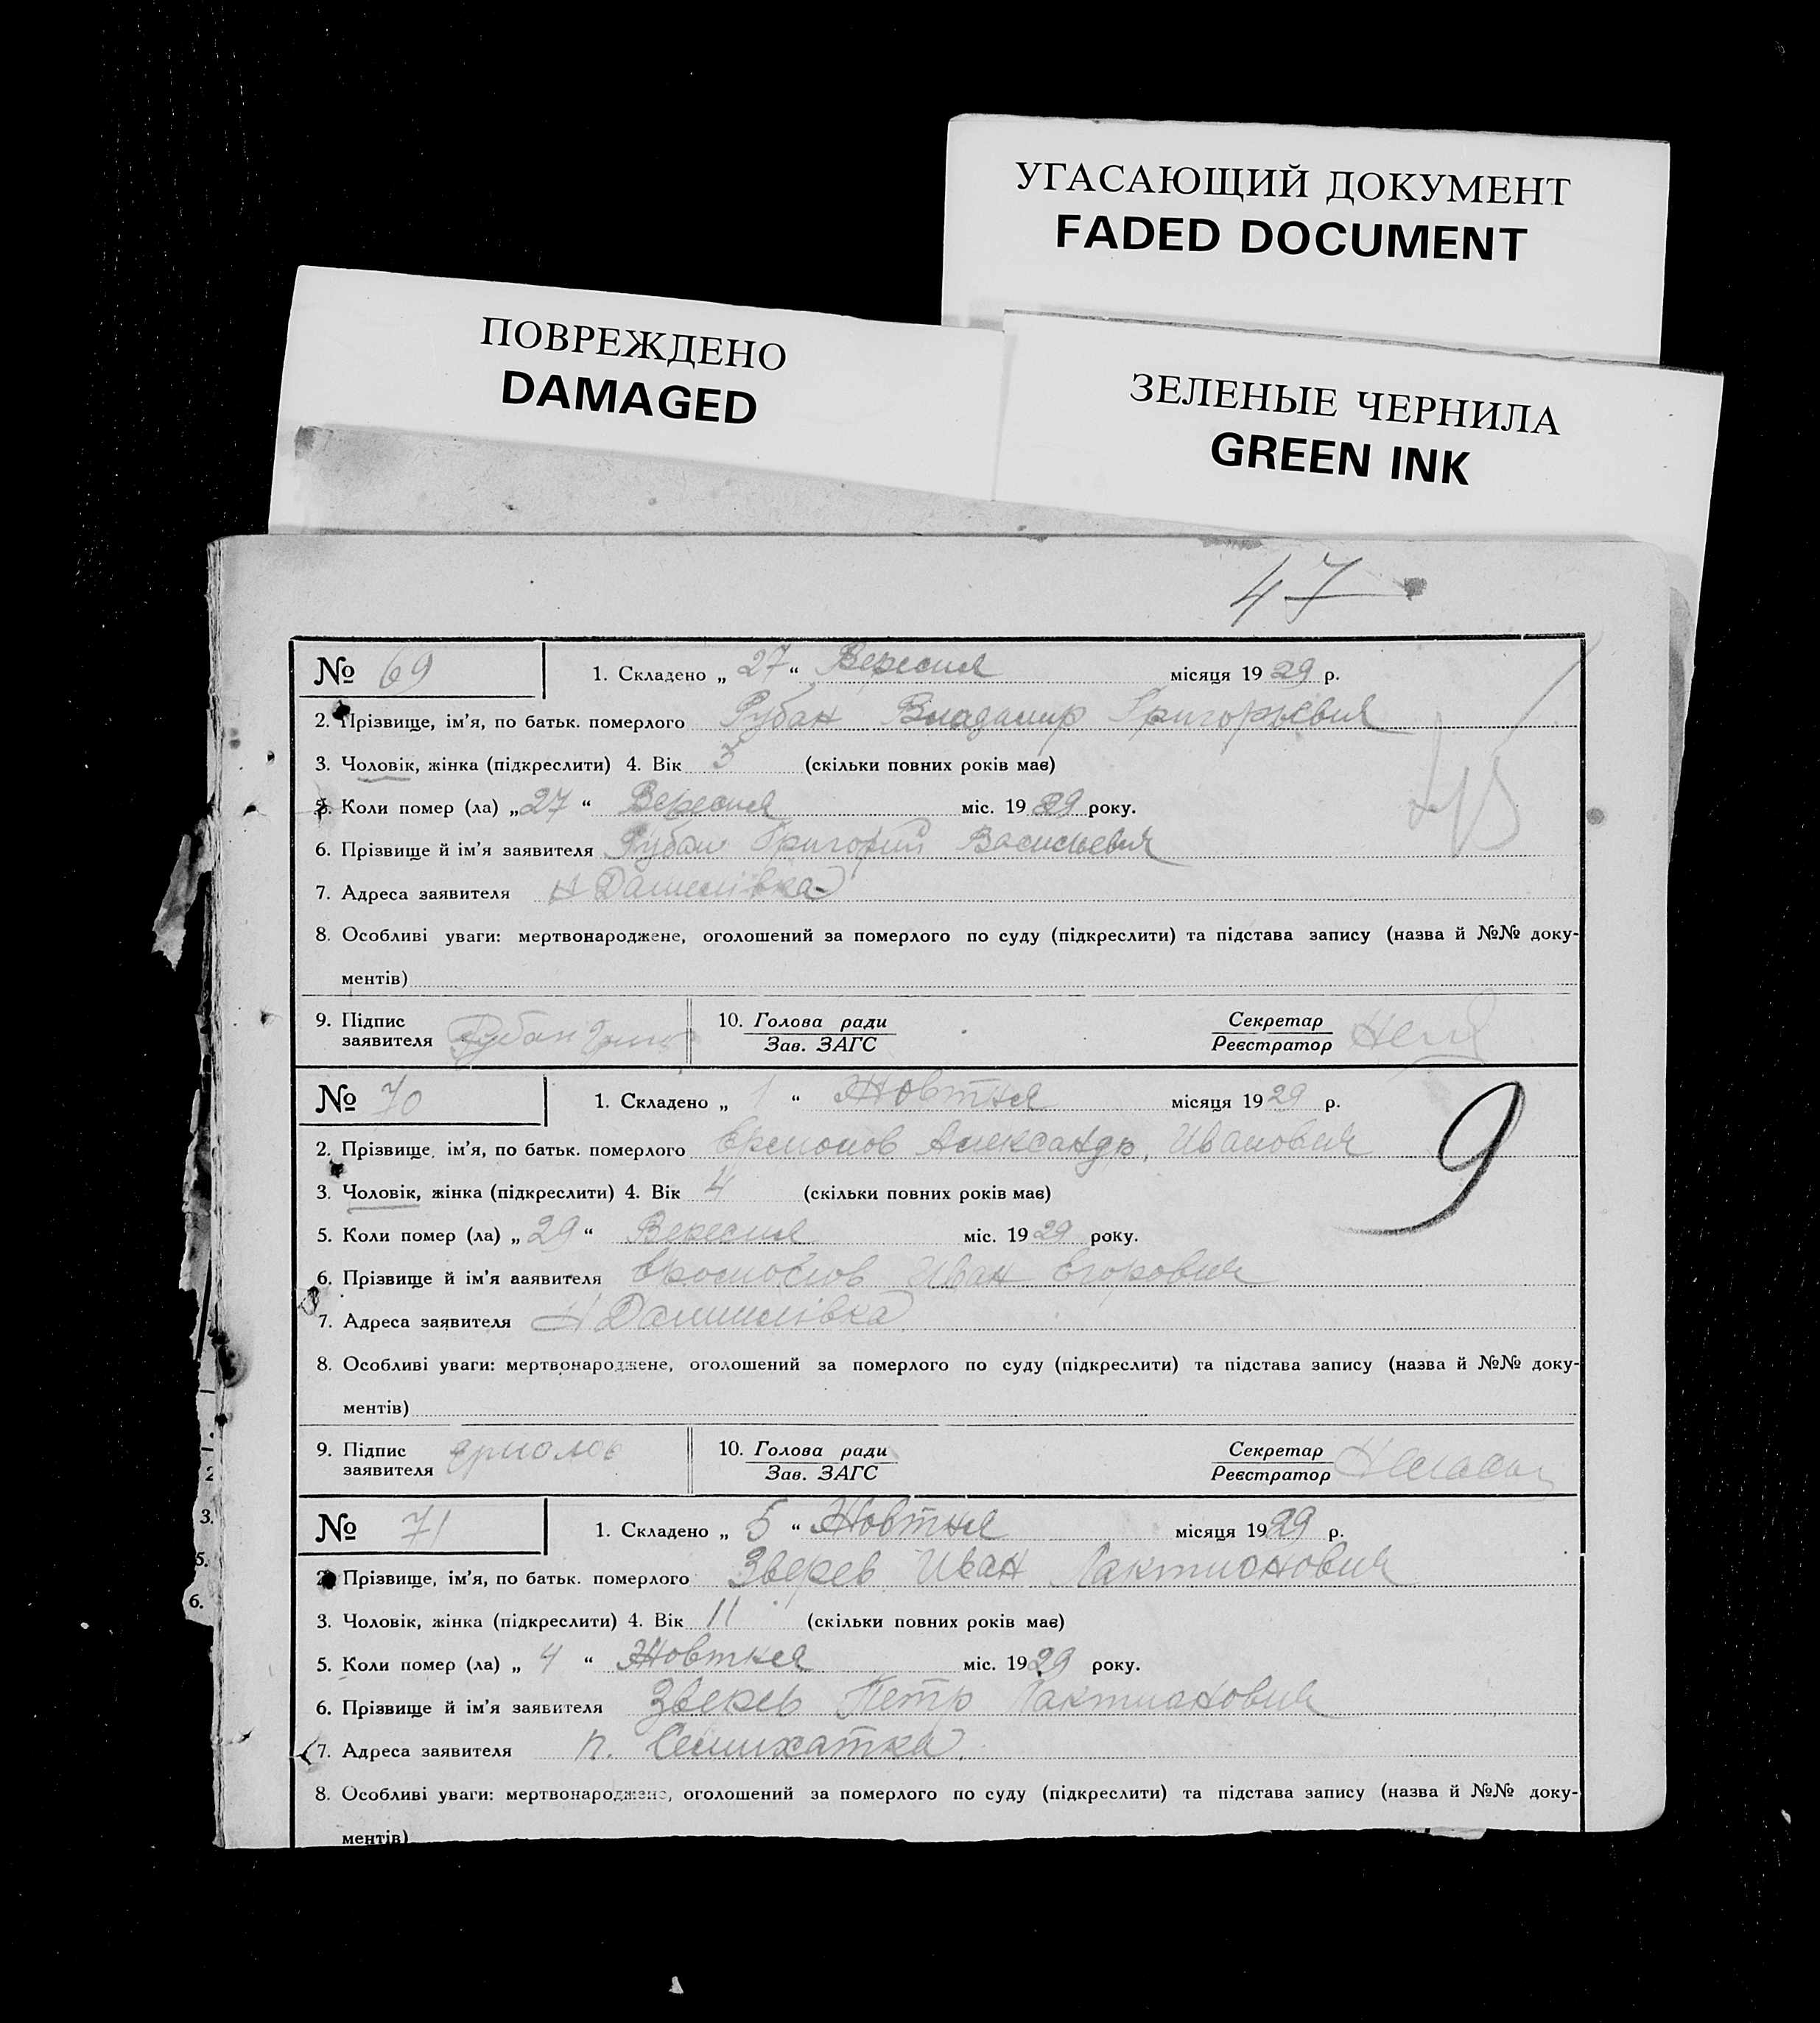 УГАСАЮЩИЙ ДОКУМЕНТ
FADED DOCUMENT
ПОВРЕЖДЕНО
DAMAGED
ЗЕЛЕНЫЕ ЧЕРНИЛА
GREEN INK
47
№ 69 1. Складено „ 27 “ Вересня місяця 1929 р.
2. Прізвище, ім’я, по батьк. померлого Рубан Владимир Григорьевич
3. Чоловік, жінка (підкреслити) 4. Вік 3 (скільки повних років має)
5. Коли помер (ла) „ 27 “ Вересня міс. 1929 року.
6. Прізвище й ім’я заявителя Рубан Григорий Васильевич
7. Адреса заявителя Н Данилівка
8. Особливі уваги: мертвонароджене, оголошений за померлого по суду (підкреслити) та підстава запису (назва й №№ доку-
ментів)
9. Підпис заявителя Рубан 10. Голова ради Зав. ЗАГС Секретар Реєстратор
№ 70 1. Складено „ 1 “ Жовтня місяця 1929 р.
9
2. Прізвище, ім’я, по батьк. померлого Александр Иванович
3. Чоловік, жінка (підкреслити) 4. Вік 4 (скільки повних років має)
5. Коли помер (ла) „ 29 “ Вересня міс. 1929 року.
6. Прізвище й ім’я заявителя Иван Егорович
7. Адреса заявителя Н Данилівка
8. Особливі уваги: мертвонароджене, оголошений за померлого по суду (підкреслити) та підстава запису (назва й №№ доку-
ментів)
9. Підпис заявителя Ермолов 10. Голова ради Зав. ЗАГС Секретар Реєстратор
№ 71 1. Складено „ 5 “ Жовтня місяця 1929 р.
2. Прізвище, ім’я, по батьк. померлого Зверев Иван Лактионович
3. Чоловік, жінка (підкреслити) 4. Вік 11 (скільки повних років має)
5. Коли помер (ла) „ 4 “ Жовтня міс. 1929 року.
6. Прізвище й ім’я заявителя Зверев Петр Лактионович
7. Адреса заявителя п. Семихатка
8. Особливі уваги: мертвонароджене, оголошений за померлого по суду (підкреслити) та підстава запису (назва й №№ доку-
ментів)